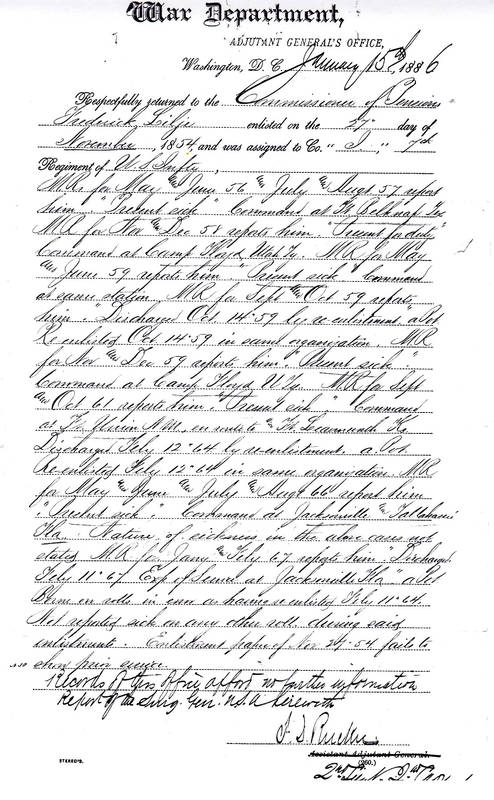 War Department,
ADJUTANT GENERAL'S OFFICE,
Washington, D. C. January 15th, 1886
Respectfully returned to the Commissioner of Pensions
Frederick Lilje enlisted on the 27" day of
November, 1854 and was assigned to Co. " I ," 7th
Regiment of U S Infty,
MRs for May and June 56 and July and Augt 57 report
him "Present sick" Command at Ft Belknap Tex
MR for Nov and Dec 58 reports him "Present for duty"
Command at Camp Floyd Utah Ty. MR for May
and June 59 reports him "Present sick" Command
at same station MR for Sept and Oct 59 reports
him Discharged Oct 14-59 by re enlistment a
Re enlisted Oct 14-59 in same organization. MR
for Nov and Dec 59 reports him "Present sick"
Command at Camp Floyd U Ty. MR for Sept
and Oct 61 reports him "Present sick" Command
at Ft N M. en route to Ft Leavenworth Ks
Discharged Feby 12-64 by re enlistment. a
Re enlisted Feby 12-64 in same organization MR
for May and June and July and Augt 66 report him
"Present sick" Command at Jacksonville and Tallahassee
Fla. Nature of sickness in the above cases not
stated MR for Jany and Feby 67 reports him "Discharged
Feby 11-67 Exp of Service at Jacksonville Fla" a
Borne on rolls in error as having re enlisted Feby 11-64.
Not reported sick on any other rolls during said
enlistments. Enlistment paper of Nov 27-54 fails to
show prior service
records of this office afford no further information
Report of the Surg. Genl. U.S.A herewith
Assistant Adjutant General.
(260.)
STEREO'D.